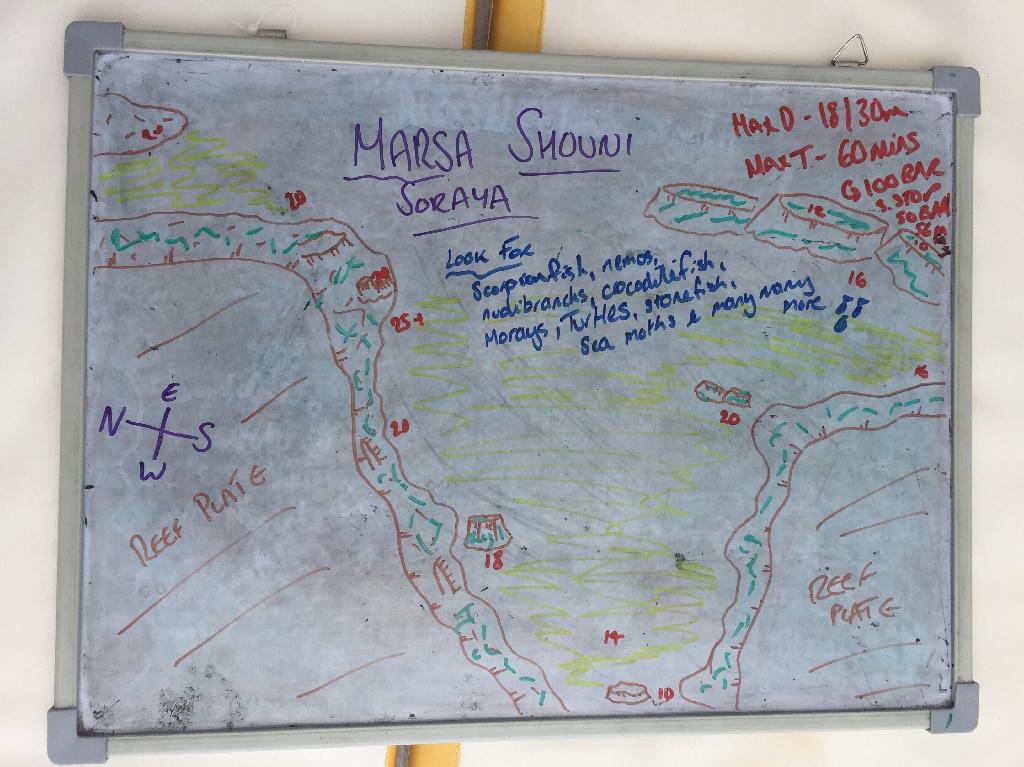 MARSA SHOUNI
SORAYA
MAX D - 18/30m
MAX T - 60 MINS
G 100 BAR
S. STOP
50 BAR
LOOK FOR
Scorpionfish, nemos,
nudibranchs, crocodilefish,
Morays, Turtles, stonefish,
Sea moths & many many
more !!
20
20
25+
20
18
14
10
12
16
16
20
N E S W
REEF PLATE
REEF
PLATE